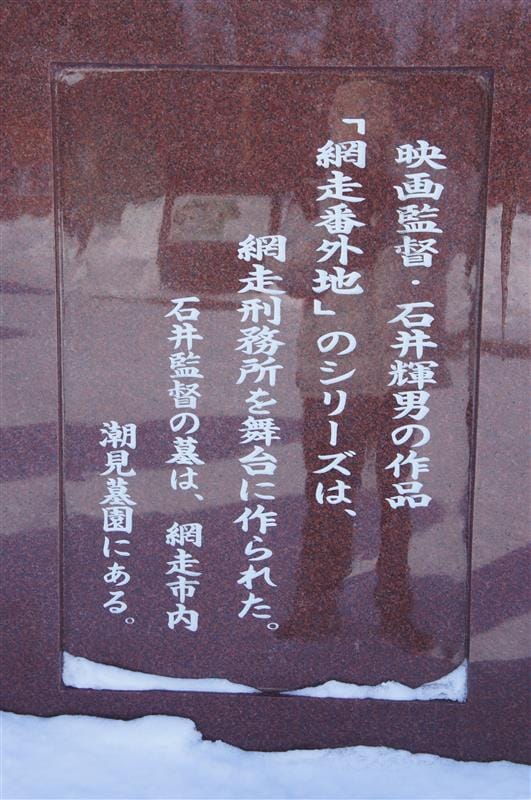 映画監督・石井輝男の作品
「網走番外地」のシリーズは、
網走刑務所を舞台に作られた。
石井監督の墓は、網走市内
潮見墓園にある。